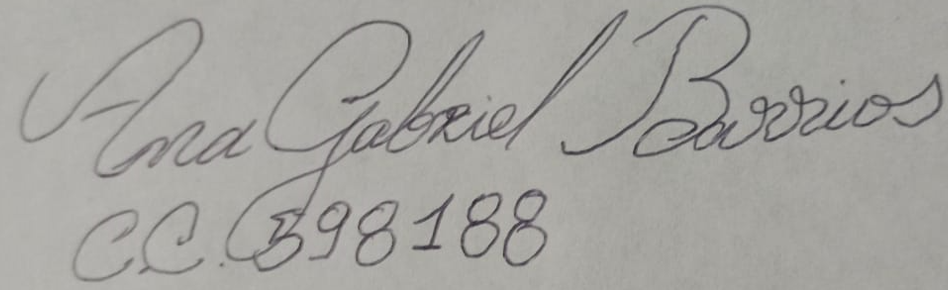 Ana Gabriel Barrios
CC. 398188